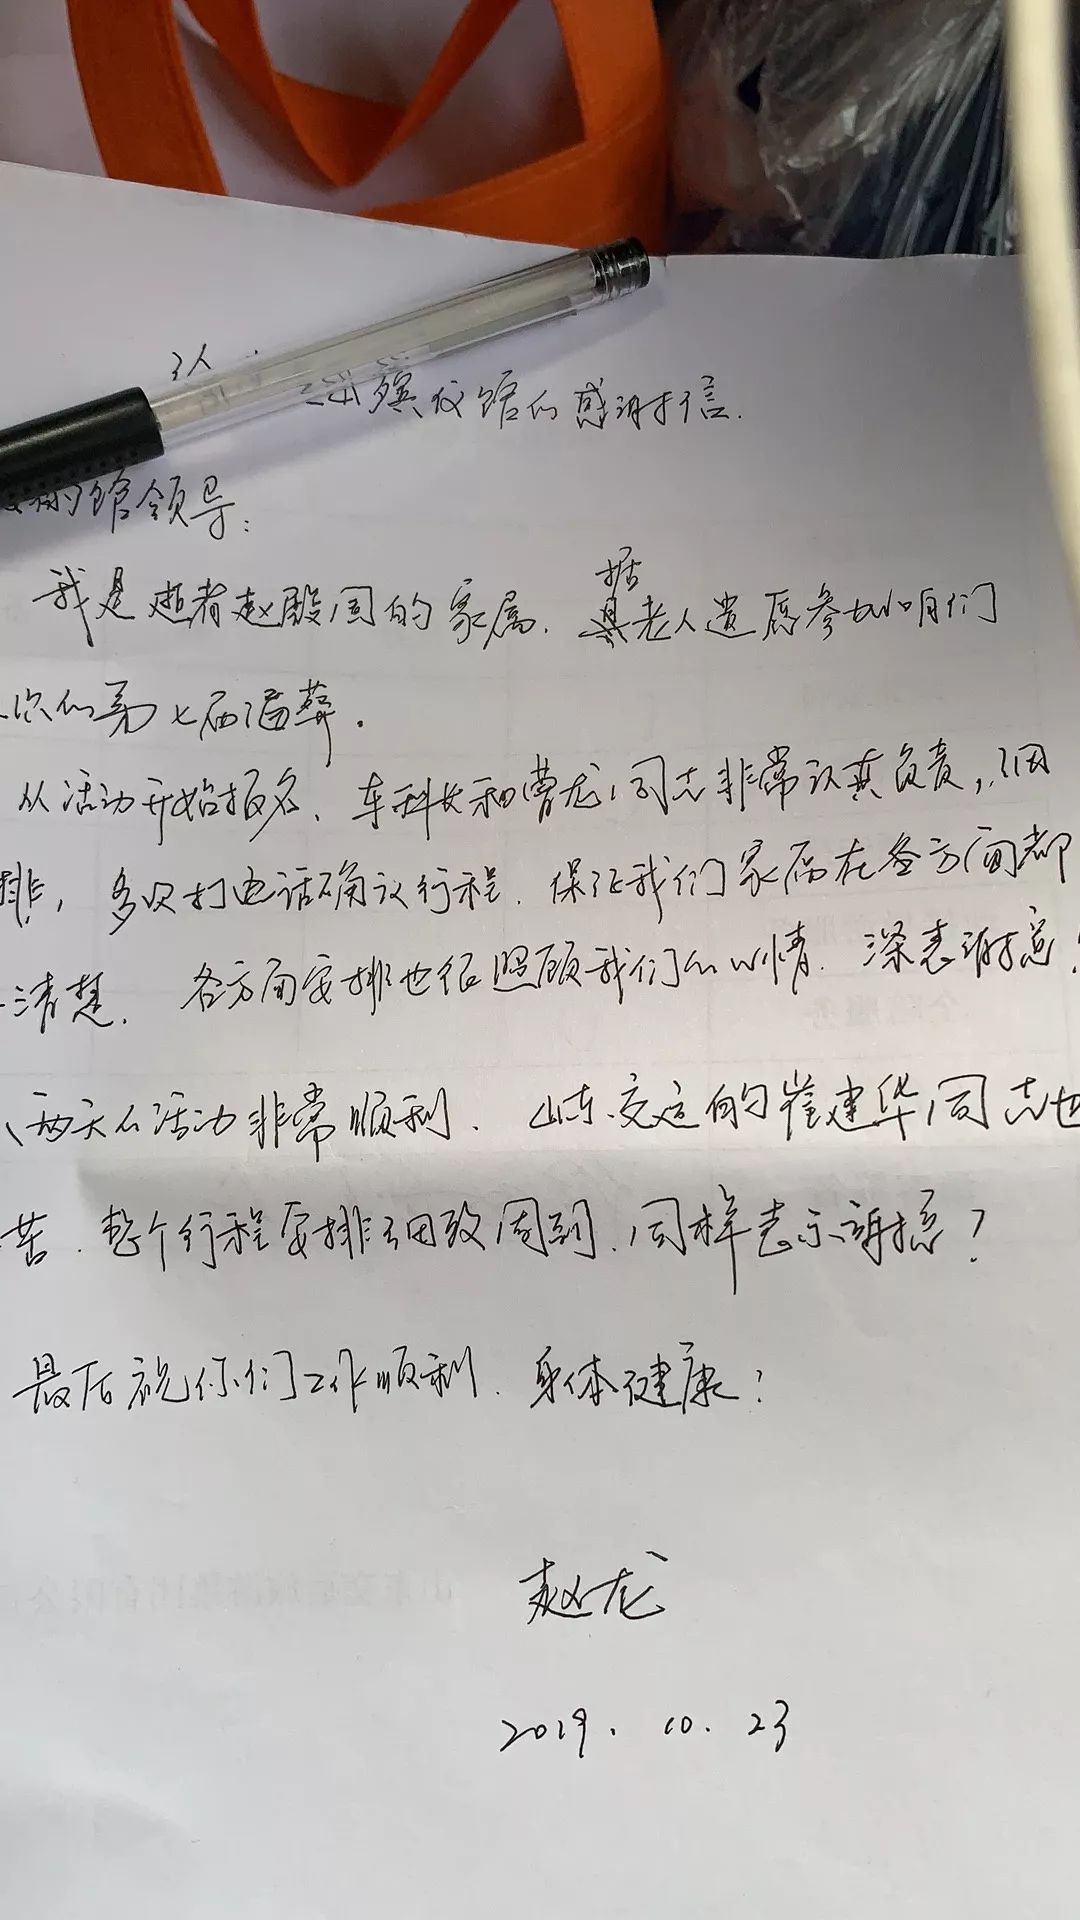 殡仪馆的感谢信.
的馆领导:
我是逝者赵殿周的家属、据老人遗愿参加咱们
的第七届海葬.
从活动开始报名、车科长和曹龙同志非常认真负责,细
排,多次打电话确认行程.保证我们家属在各方面都
清楚.各方面安排也很照顾我们的心情.深表谢意!
两天的活动非常顺利、山东交运的崔建华同志也
苦.整个行程安排细致周到.同样表示谢意!
最后祝你们工作顺利.身体健康!
赵龙
2019.10.23